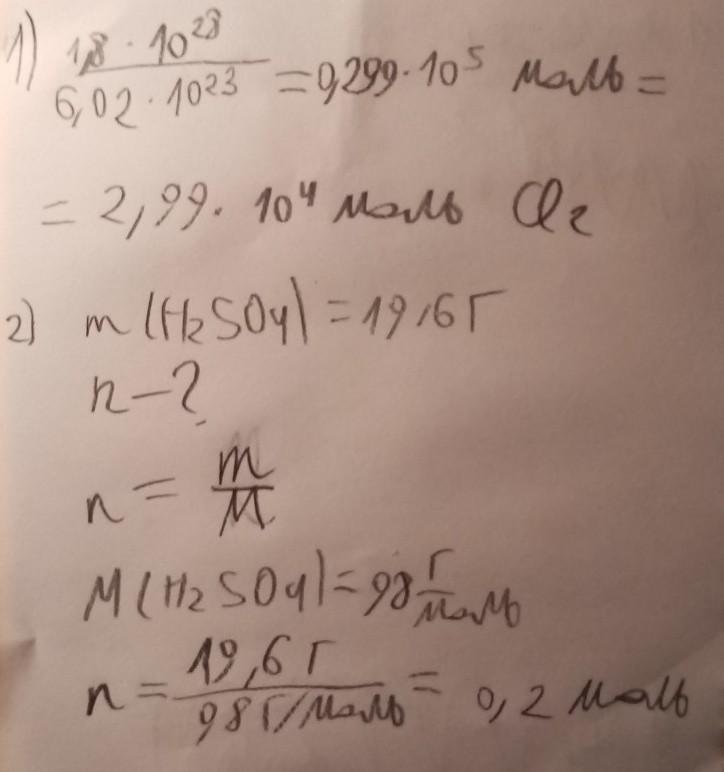 1) 1,8 · 10²⁸ / 6,02 · 10²³ = 0,299 · 10⁵ моль =
= 2,99 · 10⁴ моль Cl₂
2) m (H₂SO₄) = 19,6 г
n – ?
n = m / M
M (H₂SO₄) = 98 г/моль
n = 19,6 г / 98 г/моль = 0,2 моль